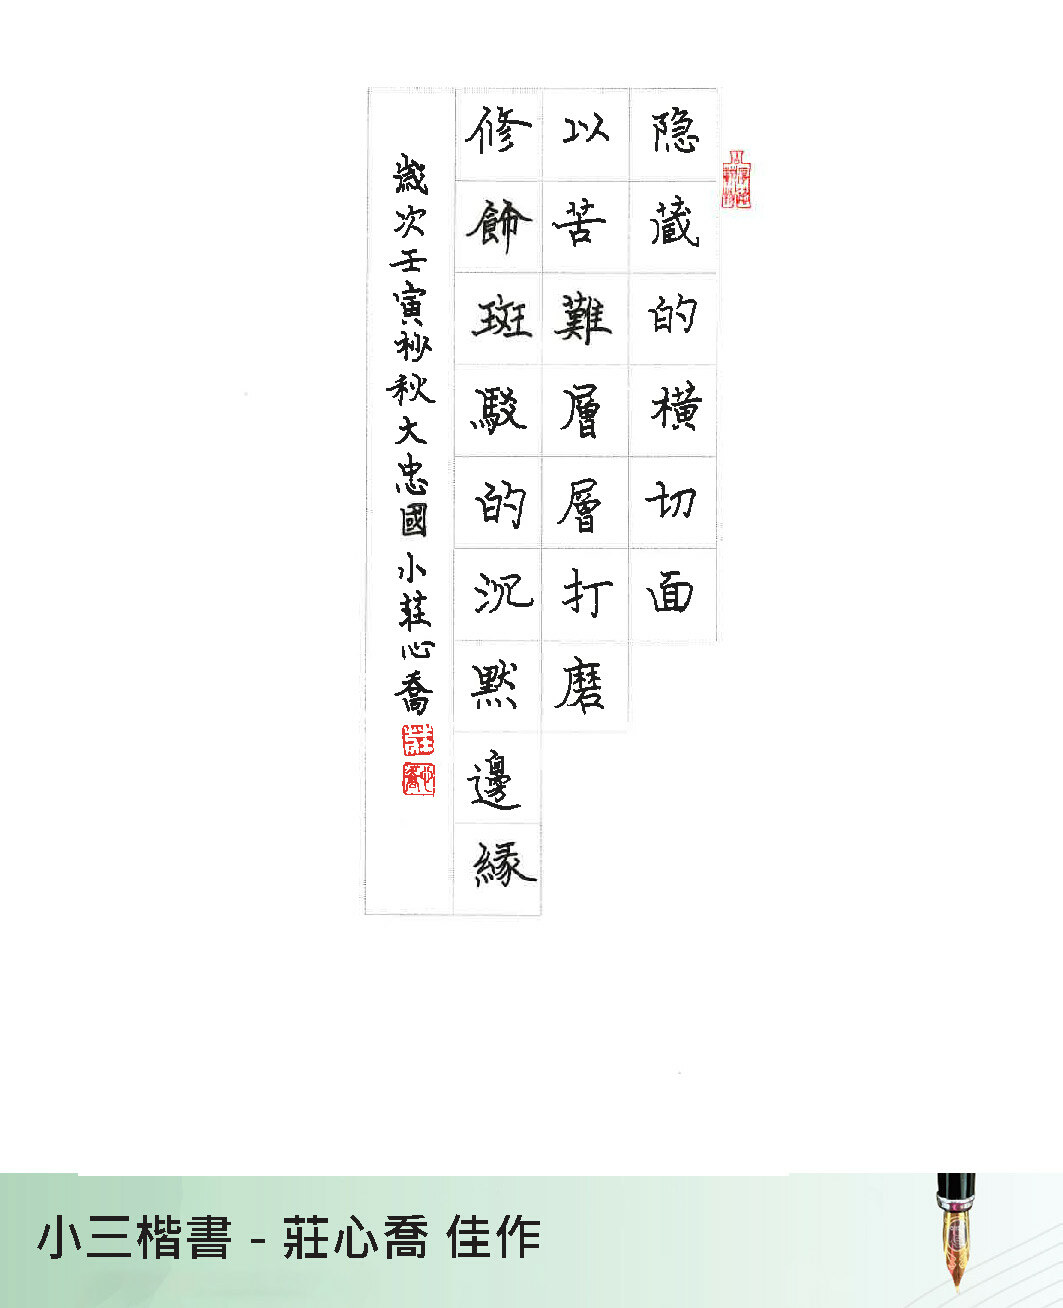 隐藏的橫切面
以苦難層層打磨
修飾斑駁的沉默邊緣
歲次壬寅秒秋大忠國小莊心喬
小三楷書 - 莊心喬 佳作